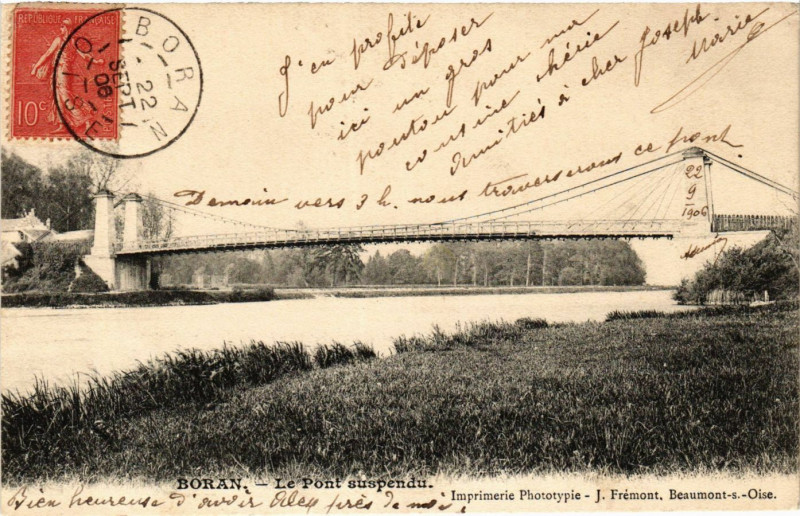 RÉPUBLIQUE FRANÇAISE
10c
BORAN
22
SEPT
06
OISE
J'en profite
pour déposer
ici un gros
poutou pour ma
cousine chérie
Amitiés à cher Joseph
Marie
Demain vers 3 h. nous traverserons ce pont
22
9
1906
BORAN. - Le Pont suspendu.
Imprimerie Phototypie - J. Frémont, Beaumont-s.-Oise.
Bien heureuse d'avoir Alex près de moi.